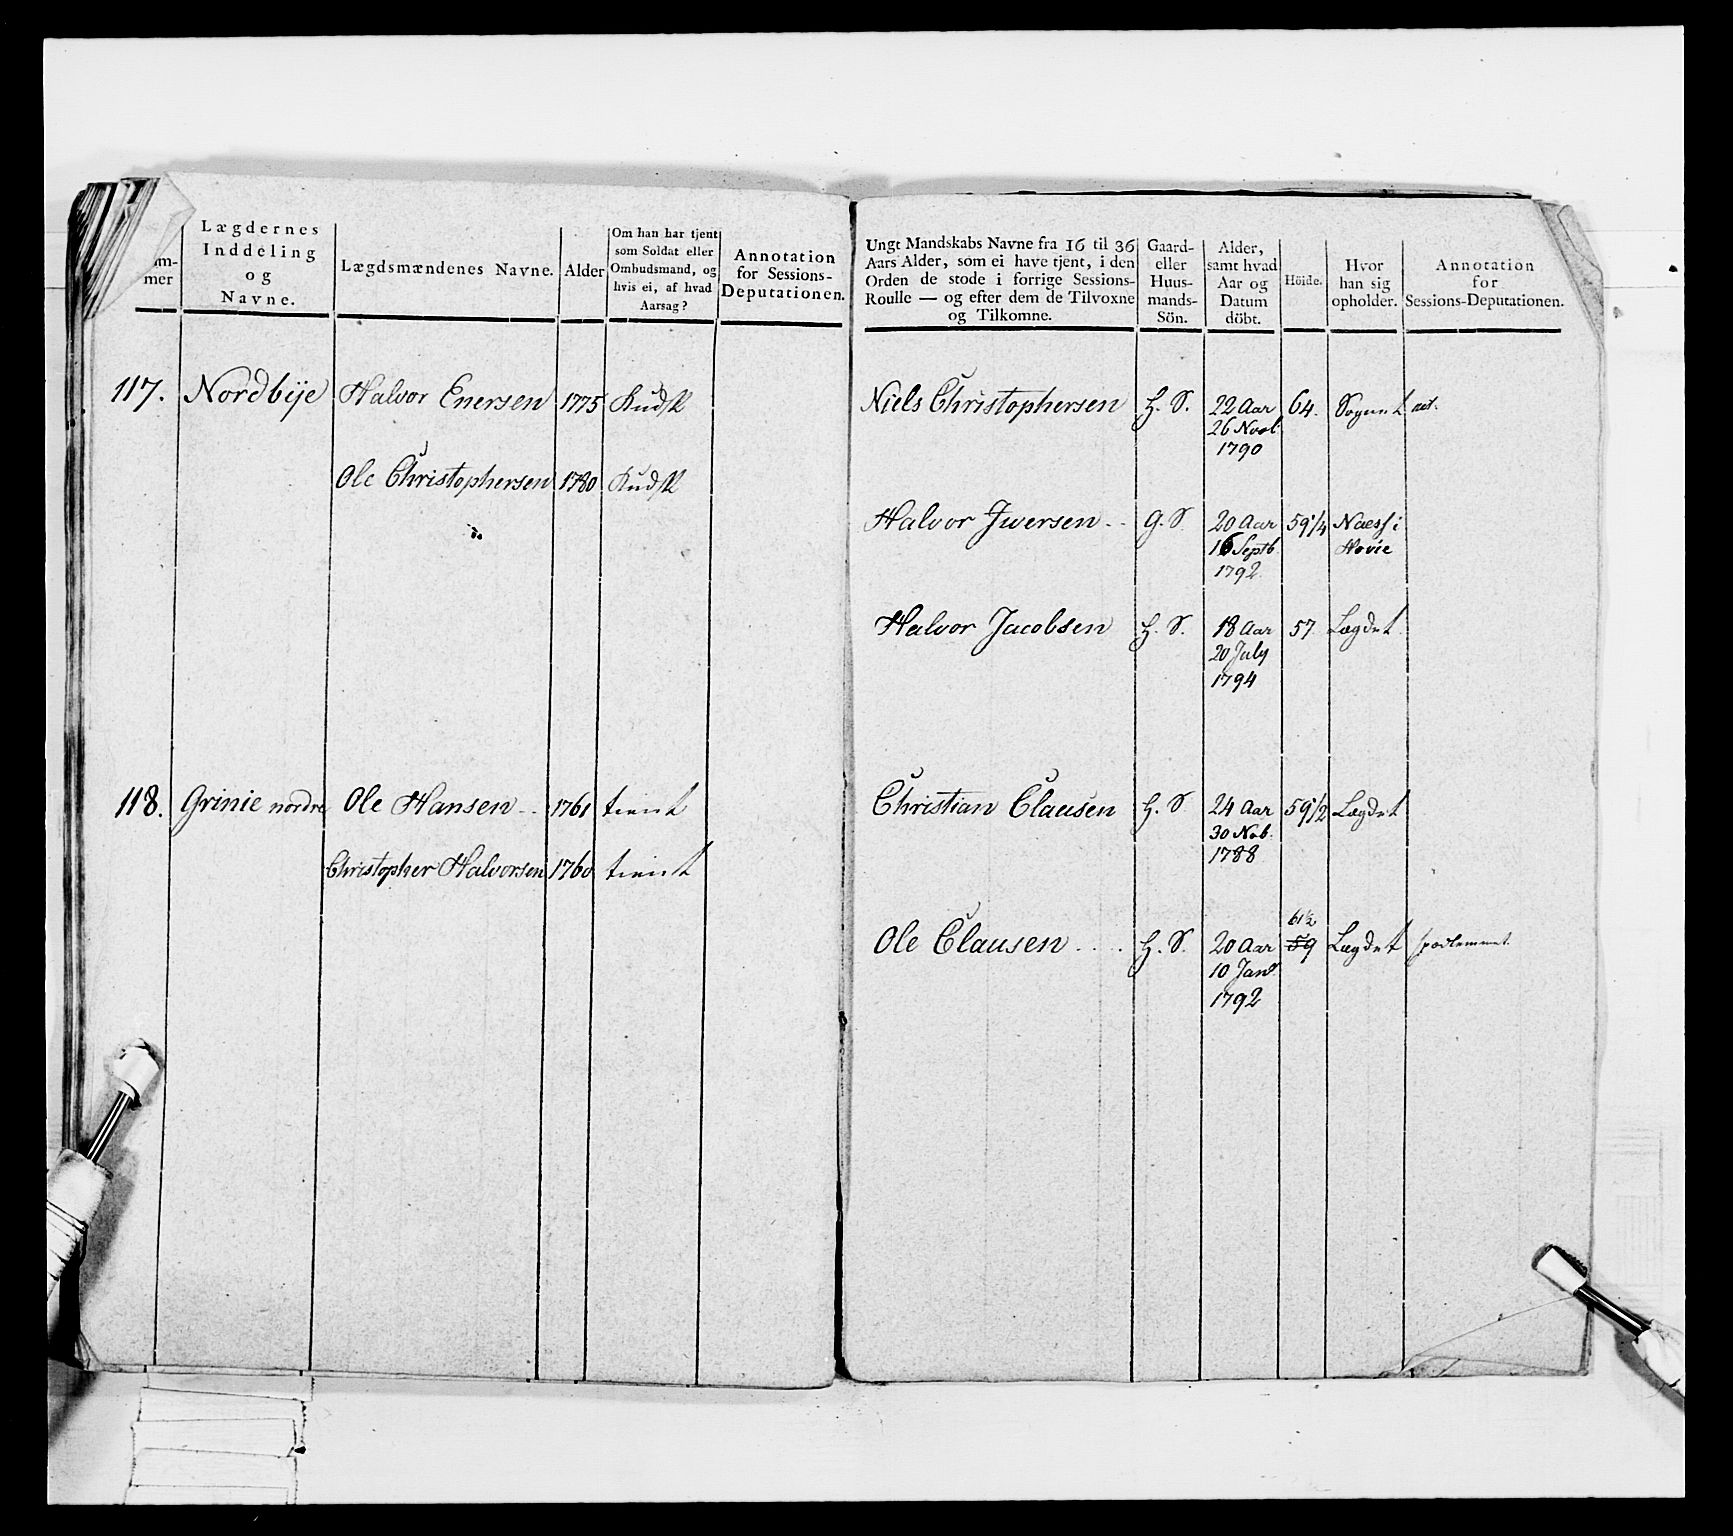 mer
Lægdernes
Inddeling
og
Navne.
Lægdsmændenes Navne.
Alder
Om han har tjent
som Soldat eller
Ombudsmand, og
hvis ei, af hvad
Aarsag?
Annotation
for Sessions-
Deputationen.
Ungt Mandskabs Navne fra 16 til 36
Aars Alder, som ei have tjent, i den
Orden de stode i forrige Sessions-
Roulle — og efter dem de Tilvoxne
og Tilkomne.
Gaard-
eller
Huus-
mands-
Sön.
Alder,
samt hvad
Aar og
Datum
döbt.
Höide.
Hvor
han sig
opholder.
Annotation
for
Sessions-Deputationen.
117. Nordbÿe Halvor Enersen 1775 Kudsk
Ole Christophersen 1780 Kudsk
118. Grinie nordre Ole Hansen 1761 tient
Christopher Halvorsen 1760 tient
Niels Christophersen H. S. 22 Aar 64. Sognet
26 Novb.
1790
Halvor Iwersen G. S. 20 Aar 59 1/4 Naess i
16 Septb. Hovie
1792.
Halvor Jacobsen H. S. 18 Aar 57 Lægdet
20 July
1794
Christian Clausen H. S 24 Aar 59 1/2 Lægdet
30 Nob.
1788
61 1/2
Ole Clausen H. S. 20 Aar 59 Lægdet
10 Janr
1792